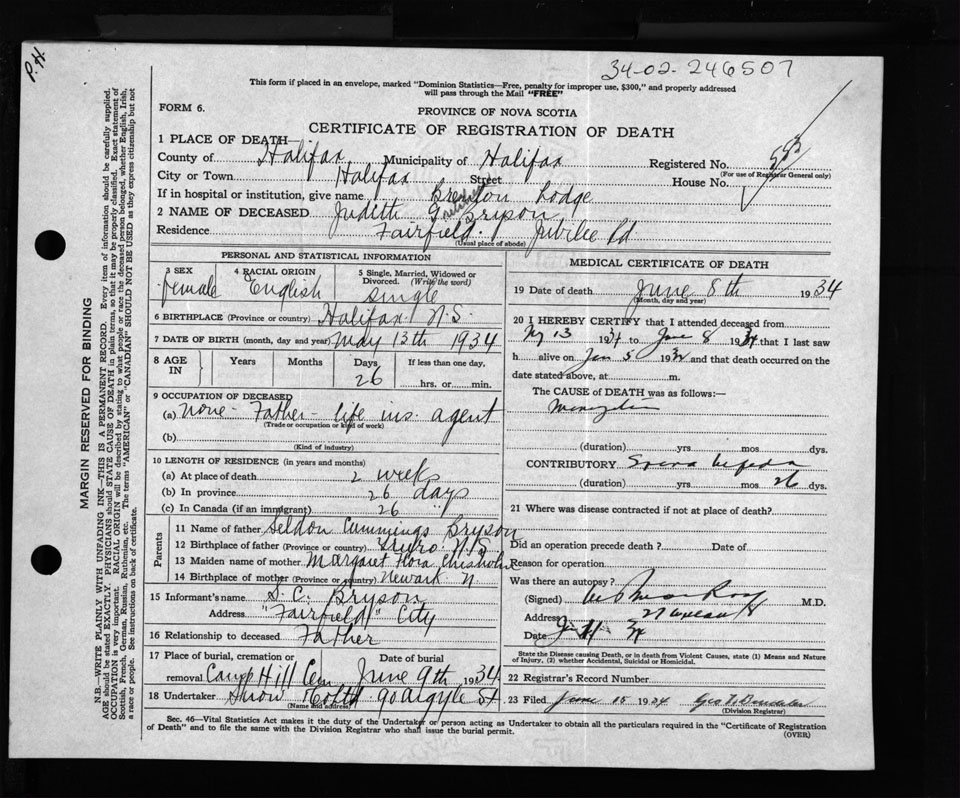 34-02-246507
P.H.
This form if placed in an envelope, marked "Dominion Statistics—Free, penalty for improper use, $300," and properly addressed
will pass through the Mail "FREE"
FORM 6.
PROVINCE OF NOVA SCOTIA
CERTIFICATE OF REGISTRATION OF DEATH
MARGIN RESERVED FOR BINDING
N.B.—WRITE PLAINLY WITH UNFADING INK—THIS IS A PERMANENT RECORD. Every item of information should be carefully supplied.
AGE should be stated EXACTLY. PHYSICIANS should STATE CAUSE OF DEATH in plain terms, so that it may be properly classified. Exact statement of
OCCUPATION is very important. RACIAL ORIGIN will be described by stating to what people or race the deceased person belonged, whether English, Irish,
Scottish, French, German, Russian, Ruthenian, etc. The terms "AMERICAN" or "CANADIAN" SHOULD NOT BE USED as they express citizenship but not
a race or people. See instructions on back of certificate.
1 PLACE OF DEATH—
County of Halifax Municipality of Halifax Registered No.
(For use of Registrar General only)
City or Town Halifax Street House No.
If in hospital or institution, give name Lodge
2 NAME OF DECEASED Judith Bryson
Residence Fairfield Jubilee Rd
(Usual place of abode)
PERSONAL AND STATISTICAL INFORMATION
3 SEX 4 RACIAL ORIGIN 5 Single, Married, Widowed or
Divorced. (Write the word)
female English single
6 BIRTHPLACE (Province or country) Halifax N.S.
7 DATE OF BIRTH (month, day and year) May 13th 1934
8 AGE IN Years Months Days If less than one day,
26 hrs. or min.
9 OCCUPATION OF DECEASED
(a) none - Father - life ins. agent
(Trade or occupation or kind of work)
(b)
(Kind of industry)
10 LENGTH OF RESIDENCE (in years and months)
(a) At place of death 2 weeks
(b) In province 26 days
(c) In Canada (if an immigrant) 26 "
Parents
11 Name of father Seldon Cummings Bryson
12 Birthplace of father (Province or country) Truro N.S.
13 Maiden name of mother Margaret Flora Chisholm
14 Birthplace of mother (Province or country) Newark N.
15 Informant's name S. C. Bryson
Address "Fairfield" City
16 Relationship to deceased Father
17 Place of burial, cremation or Date of burial
removal Camp Hill Cem June 9th 1934
18 Undertaker Snow 90 Argyle St
(Name and address)
MEDICAL CERTIFICATE OF DEATH
19 Date of death June 8th 1934
(Month, day and year)
20 I HEREBY CERTIFY that I attended deceased from
13 1934 to June 8 1934 that I last saw
h alive on 5 193 and that death occurred on
date stated above, at m.
The CAUSE of DEATH was as follows:—
(duration) yrs mos dys.
CONTRIBUTORY Spina bifida
(duration) yrs mos 26 dys.
21 Where was disease contracted if not at place of death?
Did an operation precede death? Date of
Reason for operation
Was there an autopsy?
(Signed) M.D.
Address
Date
State the Disease causing Death, or in death from Violent Causes, state (1) Means and Nature
of Injury, (2) whether Accidental, Suicidal or Homicidal.
22 Registrar's Record Number
23 Filed June 15 1934 Geo
(Division Registrar)
Sec. 46—Vital Statistics Act makes it the duty of the Undertaker or person acting as Undertaker to obtain all the particulars required in the "Certificate of Registration
of Death" and to file the same with the Division Registrar who shall issue the burial permit.
(OVER)